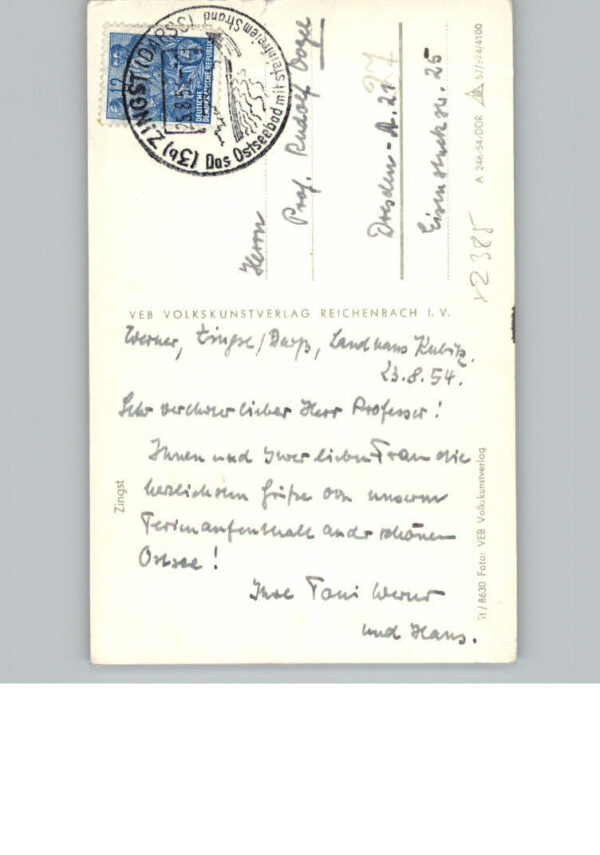 (3b) ZINGST (DARSS)
Das Ostseebad mit steinfreiem Strand
12
DEUTSCHE
DEMOKRATISCHE REPUBLIK
Herrn
Prof. Rudolf
Dresden-A. 21
27
25
A 246/54/DDR
x2385
VEB VOLKSKUNSTVERLAG REICHENBACH I. V.
Werner, Zingst/Darß, Landhaus Kubitz.
23.8.54.
Sehr verehrter lieber Herr Professor!
Ihnen und Ihrer lieben Frau die
herzlichsten Grüße von unserem
Ferienaufenthalt an der schönen
Ostsee!
Ihre Toni Werner
und Hans.
Zingst
St / 8630 Foto: VEB Volkskunstverlag